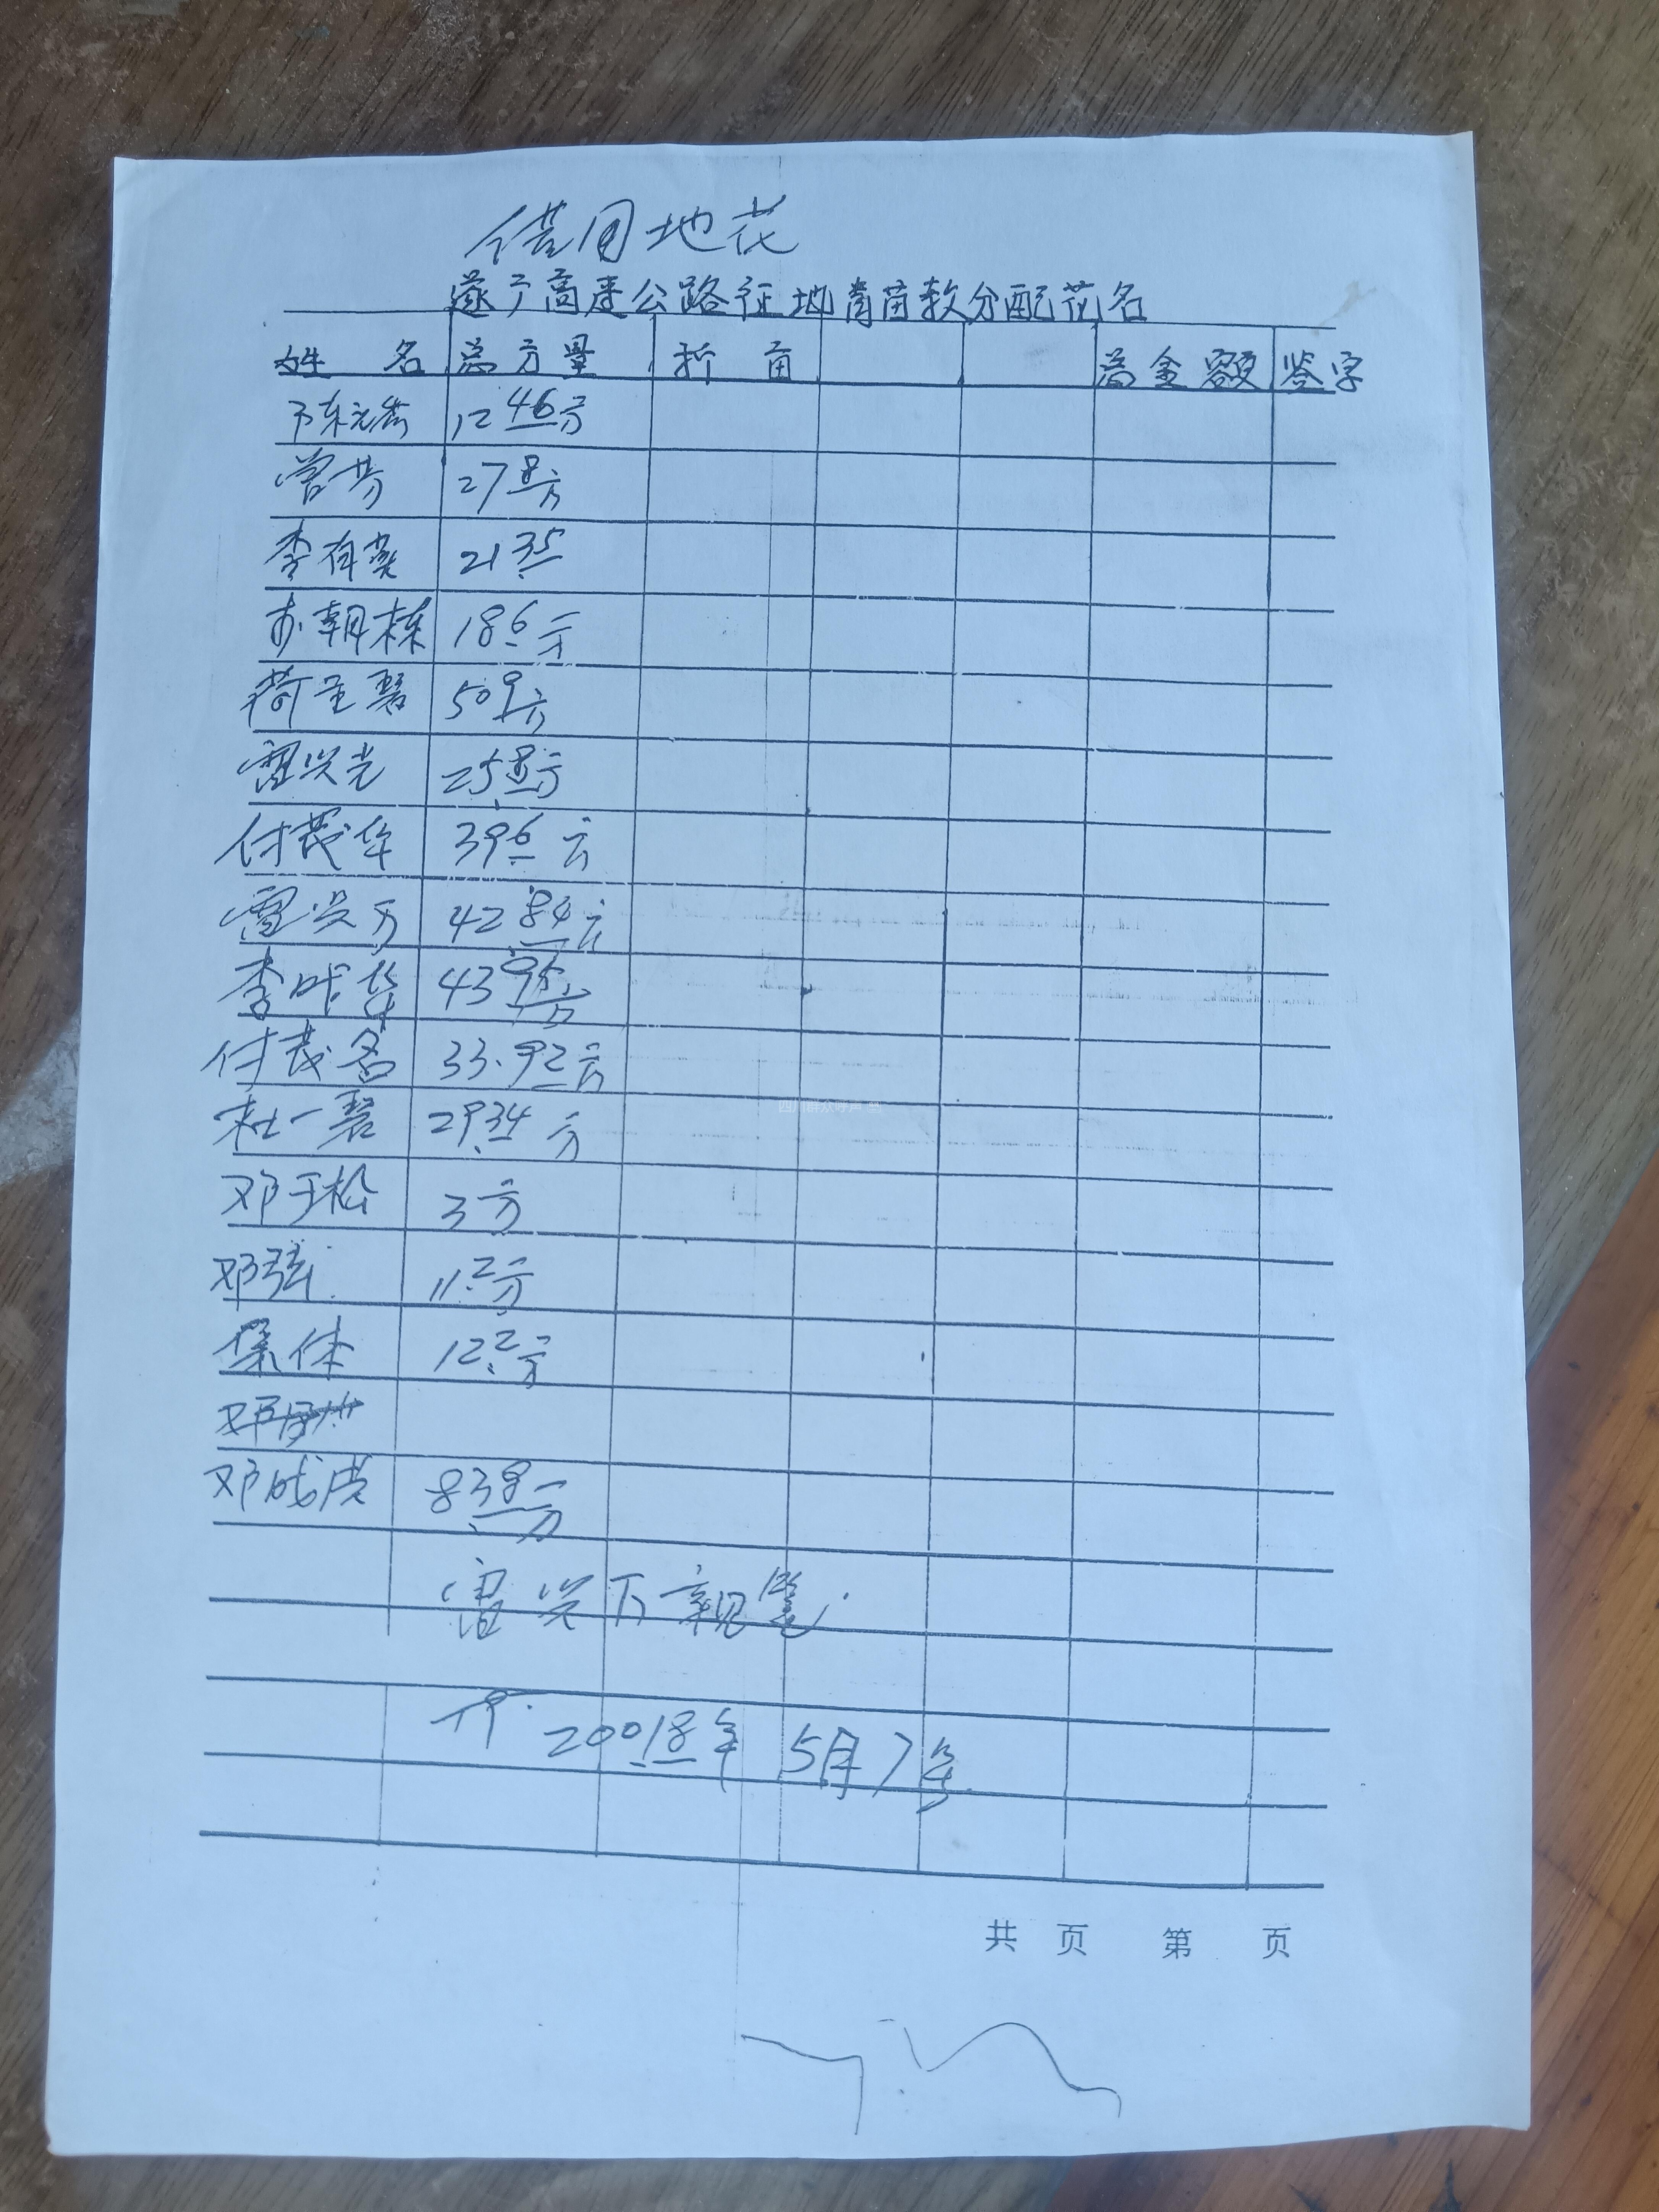 借用地花
遂宁高速公路征地青苗款分配花名
姓 名 总方量 折 亩 总金额 签字
陈元芬 12.46方
曾芳 27.8方
李有英 21.35
苏朝栋 18.6方
蒋玉碧 50.9方
雷兴光 25.8方
付茂华 39.6方
雷兴万 42.84方
李叶华 43.95方
付茂名 33.92方
杜一碧 29.34方
邓于松 3方
邓弦 11.2方
集体 12.2方
邓
邓成虎 83.8方
雷兴万亲笔
20018年 5月7号
四川群众呼声
共 页 第 页